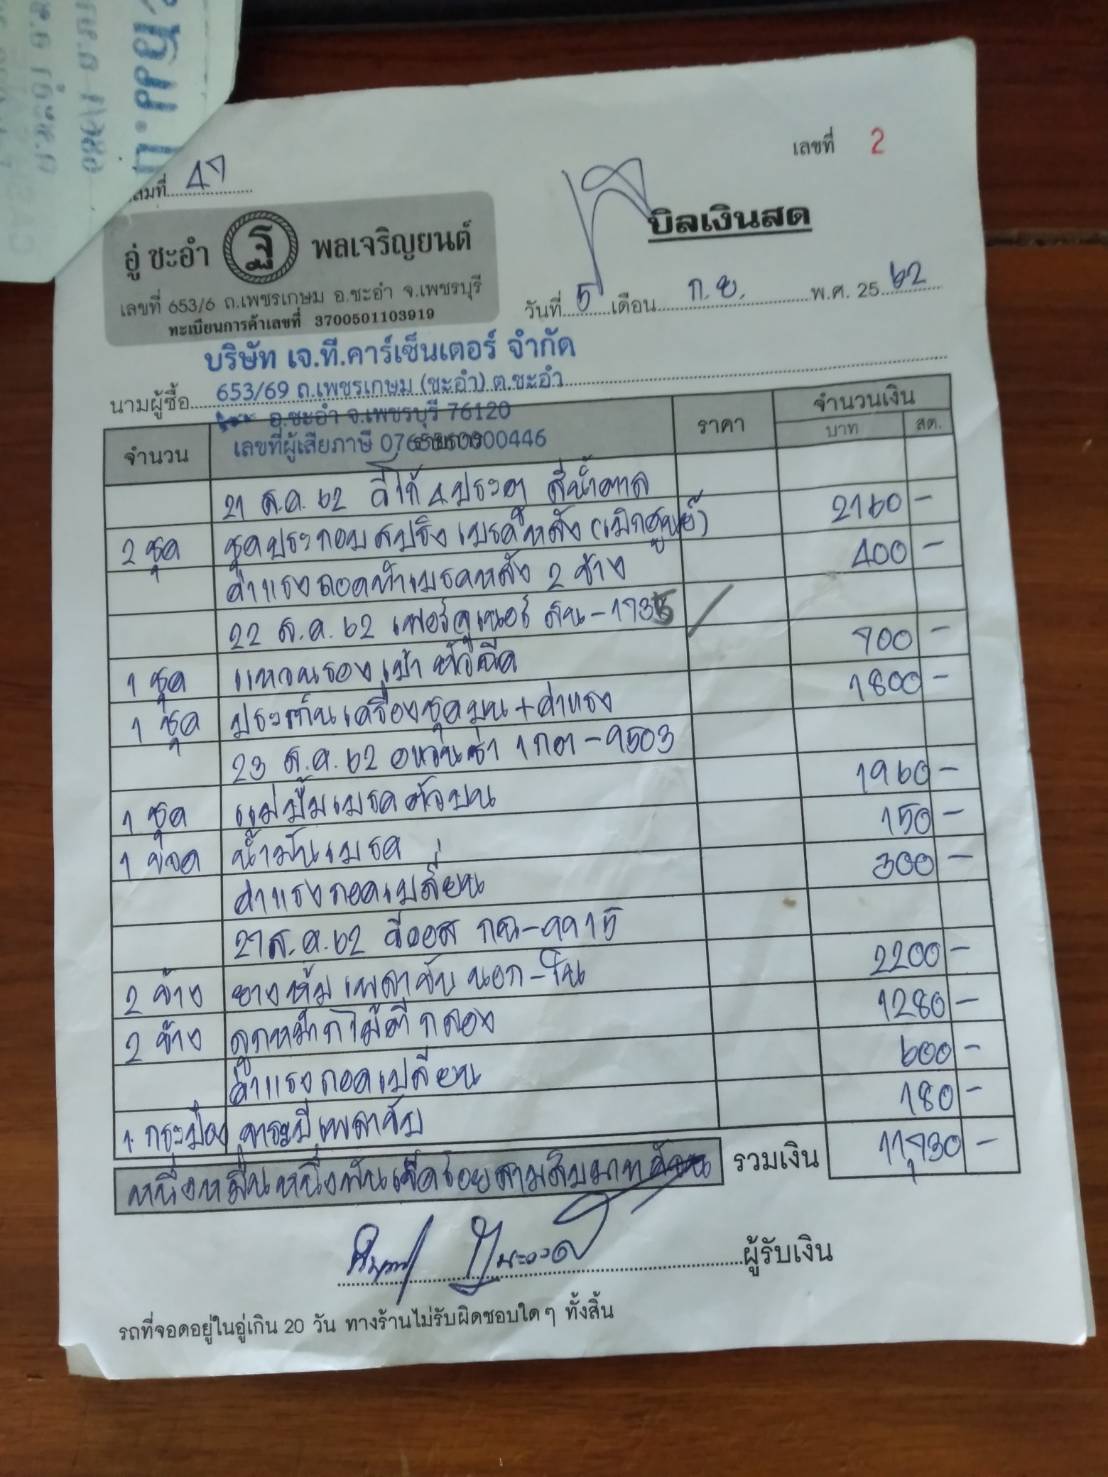 เลขที่ 2
ล่มที่ 47
บิลเงินสด
อู่ ชะอำ ฐ พลเจริญยนต์
เลขที่ 653/6 ถ.เพชรเกษม อ.ชะอำ จ.เพชรบุรี
ทะเบียนการค้าเลขที่ 3700501103919
วันที่ 5 เดือน ก.ย. พ.ศ. 25 62
บริษัท เจ.ที.คาร์เซ็นเตอร์ จำกัด
นามผู้ซื้อ 653/69 ถ.เพชรเกษม (ชะอำ) ต.ชะอำ
อ.ชะอำ จ.เพชรบุรี 76120
เลขที่ผู้เสียภาษี
จำนวน ราคา จำนวนเงิน
บาท สต.
21 ส.ค. 62 วีโก้ 4 ประตู สีน้ำตาล
2 ชุด ชุดประกอบสปริงเบรคหลัง (เบิกศูนย์) 2160 -
ค่าแรงถอดทำเบรคหลัง 2 ข้าง 400 -
22 ส.ค. 62 ฟอร์จูนเนอร์
1 ชุด แหวนรองเบ้าหัวฉีด 700 -
1 ชุด ประเก็นเครื่องชุดบน + ค่าแรง 1800 -
23 ส.ค. 62 อแวนซ่า 1กถ - 9503
1 ชุด แม่ปั๊มเบรคตัวบน 1960 -
1 ขวด น้ำมันเบรค 150 -
ค่าแรงถอดเปลี่ยน 300 -
27 ส.ค. 62 วีออส
2 ข้าง ยางหุ้มเพลาขับ นอก - ใน 2200 -
2 ข้าง ลูกหมากไม้ตีกลอง 1280 -
ค่าแรงถอดเปลี่ยน 600 -
1 กระป๋อง จาระบีเพลาขับ 180 -
หนึ่งหมื่นหนึ่งพันเจ็ดร้อยสามสิบบาทถ้วน รวมเงิน 11,730 -
ผู้รับเงิน
รถที่จอดอยู่ในอู่เกิน 20 วัน ทางร้านไม่รับผิดชอบใด ๆ ทั้งสิ้น